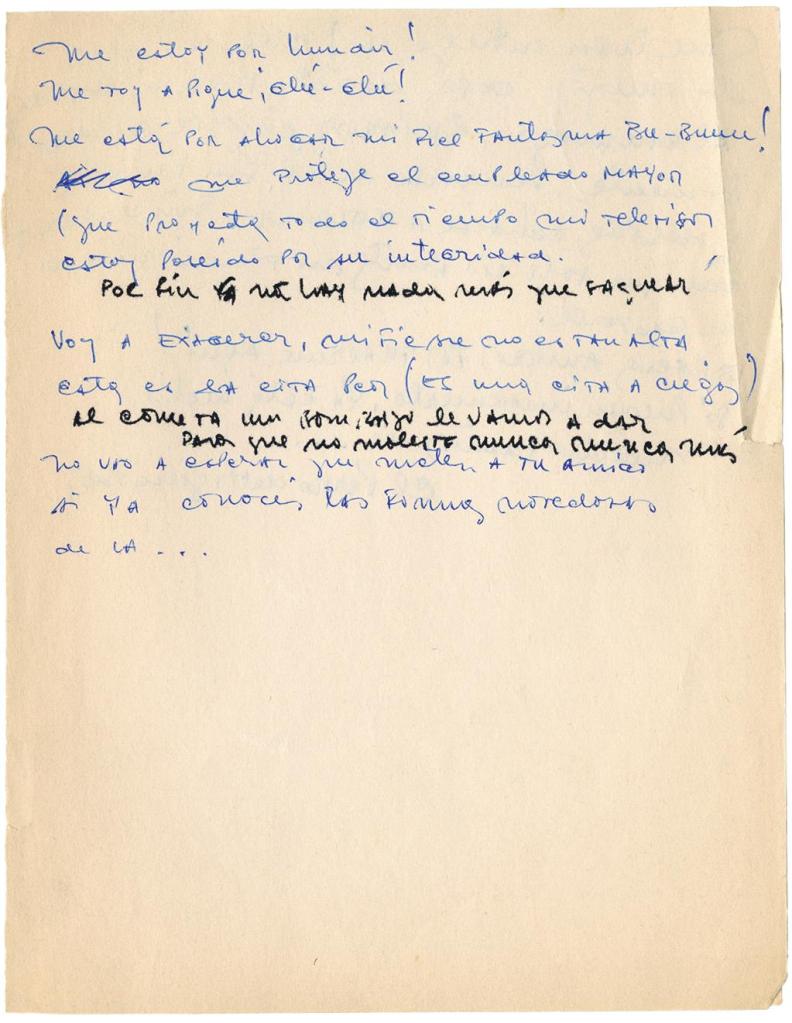 me estoy por hundir!
me voy a pique, glú-glú!
me está por ahocar mi fiel fantasma Bu-Buuu!
me proteje el empleado mayor
(que proyecta todo el tiempo mi televisor
estoy poseído por su integridad.
por fin ya no hay nada más que saquear
Voy a exagerar, mi fiebre no es tan alta
esta es la cita peor (es una cita a ciegas)
al cometa un bombazo le vamos a dar
para que no moleste nunca nunca más
no vas a esperar que maten a tu amigo
si ya conocés las formas novedosas
de la ...